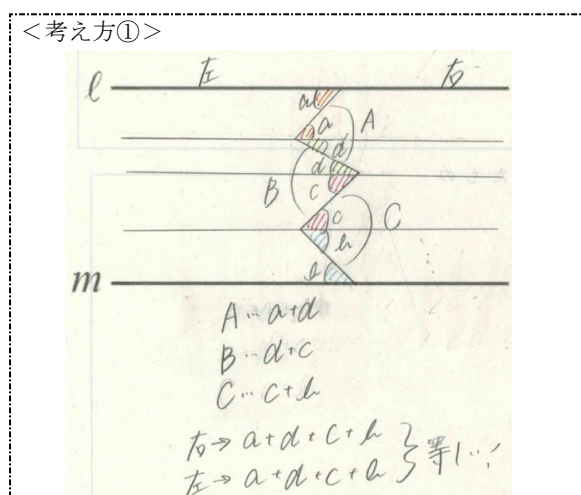 <考え方①>
左 右
ℓ
a
a A
d
d
B
c
c C
b
b
m
A…a+d
B…d+c
C…c+b
右→a+d+c+b
左→a+d+c+b
等しい!